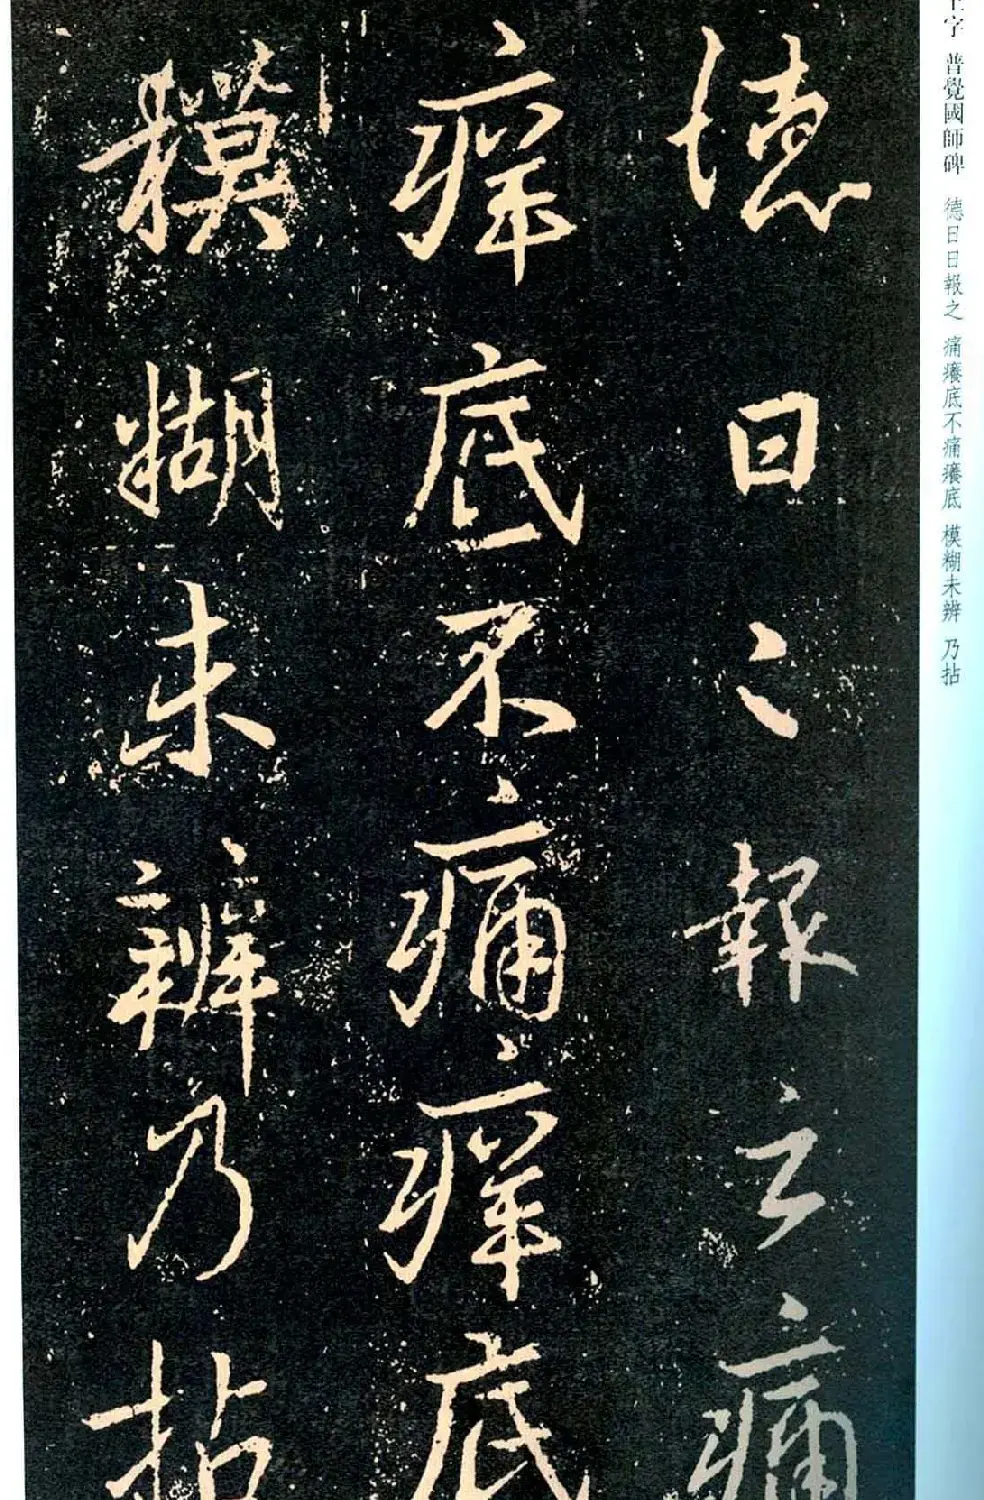 字 普覺國師碑 德日日報之 痛癢底不痛癢底 模糊未辨 乃拈
德日〻報之痛
痒底不痛痒底
模糊未辨乃拈